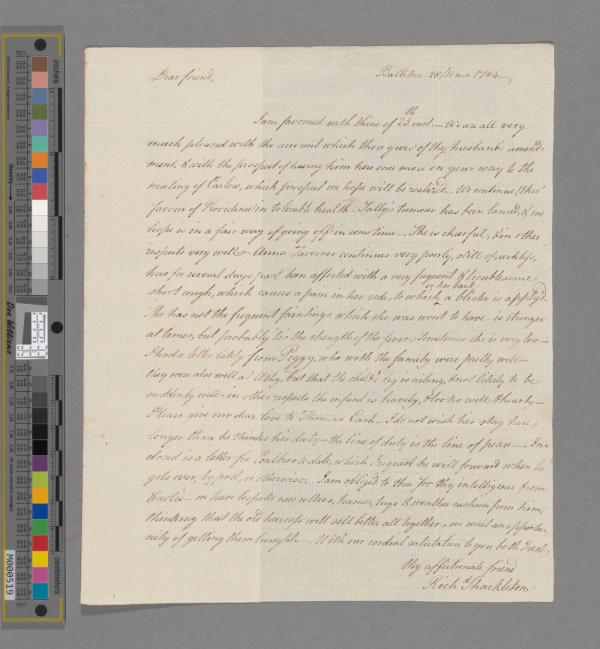 Dear friend,
Ballitore 28/11 mo. 1784
I am favoured with thine of 25th inst. — We are all very
much pleased with the account which thou gives of thy husband's amend-
ment, & with the prospect of having him here once more on your way to the
meeting of Carlow, which prospect we hope will be realized. We continue (thro'
favour of Providence) in tolerable health — Sally's tumour has been lanced, & we
hope is in a fair way of going off in some time — She is chearful, & in other
respects very well — Anna continues very poorly, still speechless,
has for several days past been affected with a very frequent & troublesome
short cough, which causes a pain in her side, to which a blister is applyed
or her back
She has not the frequent faintings which she was wont to have — is stronger
at times, but probably tis the strength of the fever. Sometimes she is very low —
I had a letter lately from Peggy, who with the family were pretty well —
they were also well at but that the child's leg is ailing, & not likely to be
suddenly well — in other respects the infant is bravely, & looks well & hearty —
Please give our dear love to Thomas Cash — I do not wish his stay here
longer than he thinks his duty — the line of duty is the line of peace — In-
closed is a letter for Coalbrookdale, which I request he will forward when he
gets over, by post, or otherwise. I am obliged to thee for thy intelligence from
we have bespoke new collars, hames, tugs & from him,
thinking that the old harness will sell better all together — we want an opportu-
nity of getting them brought. — With our cordial salutation to you both, I rest,
thy affectionate friend
Richd Shackleton.
inches
centimeters
Don Williams
M000519